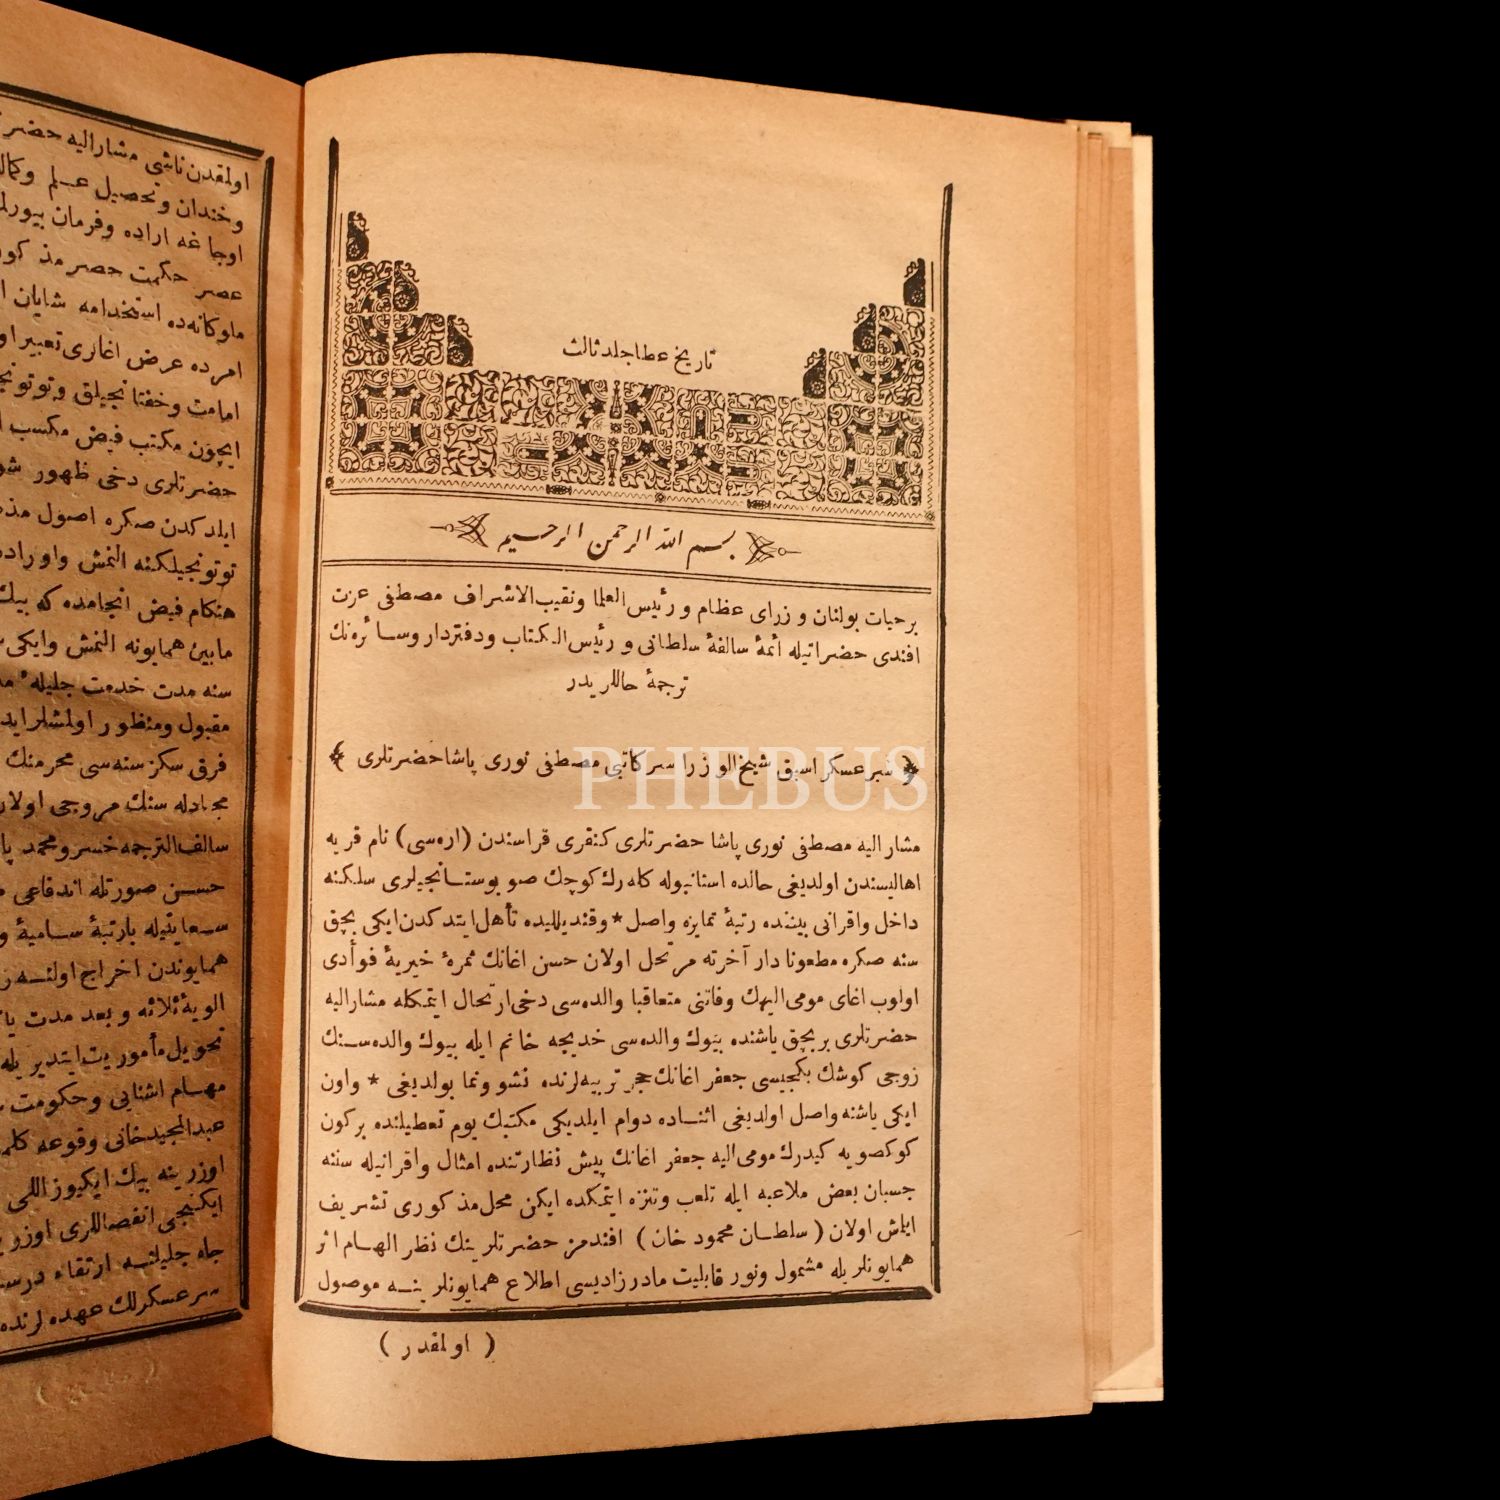 تاریخ عطا جلد ثالث
بسم الله الرحمن الرحیم
برحیات بولنان وزرای عظام و رئیس العلما ونقیب الاشراف مصطفی عزت
افندی حضراتیله أئمۀ سالفۀ سلطانی و رئیس الکتاب ودفتردار وسائره‌نك
ترجمۀ حاللریدر
﴿ سرعسکر اسبق شیخ الوزرا سرکاتبی مصطفی نوری پاشا حضرتلری ﴾
PHEBUS
مشار الیه مصطفی نوری پاشا حضرتلری کنقری قراسندن (اره‌سی) نام قریه
اهالیسندن اولدیغی حالده استانبوله کله‌رك کوچك صو بوستانجیلری سلکنه
داخل واقرانی بیننده رتبۀ تمایزه واصل * وقندیللیده تأهل ایتدکدن ایکی بچق
سنه صکره مطعونا دار آخرته مرتحل اولان حسن اغانك ثمرۀ خیریۀ فوأدی
اولوب اغای مومی الیهك وفاتنی متعاقبا والده‌سی دخی ارتحال ایتمکله مشارالیه
حضرتلری بربچق یاشنده بیوك والده‌سی خدیجه خانم ایله بیوك والده‌سنك
زوجی کوشك بکجیسی جعفر اغانك حجر تربیه‌لرنده نشو ونما بولدیغی * واون
ایکی یاشنه واصل اولدیغی اثناده دوام ایلدیکی مکتبك یوم تعطیلنده برکون
کوکصویه کیدرك مومی الیه جعفر اغانك پیش نظارتنده امثال واقرانیله سننه
جسبان بعض ملاعبه ایله تلعب وتنزه ایتمکده ایکن محل مذکوری تشریف
ایلمش اولان (سلطان محمود خان) افندمز حضرتلرینك نظر الهام اثر
همایونلریله مشمول ونور قابلیت مادرزادیسی اطلاع همایونلرینه موصول
(اولمقدر)
اولمقدن ناشی مشارالیه
وخندان وتحصیل علم
اوجاغه اراده وفرمان
عصر حکمت حصر
ماوکانه‌ده استخدامه شایان
امرده عرض اغاری تعبیر
امامت وخفتانجیلق
ایچون مکتب فیض مکسب
حضرتلری دخی ظهور
ایلدکدن صکره اصول
توتونجیلکنه النمش
هنکام فیض انجامده که بیك
مابین همایونه النمش وایکی
سنه مدت خدمت جلیله
مقبول ومنظور اولمشلر
فرق سکز سنه‌سی محرمنك
مجادله سنك مروجی
سالف الترجمه خسرو محمد
حسن صورتله اندفاعی
سعایتیله بارتبۀ سامیۀ
همایوندن اخراج
الویۀ ثلاثه وبعد مدت
تحویل مأموریت ایتدیریله
مهام اشنایی وحکومت
عبدالمجید خانی وقوعه
اوزرینه بیك ایکیوز اللی
ایکنجی انفصاللری
جاه جلیلنه ارتقاء
سرعسکرلك عهده لرنده